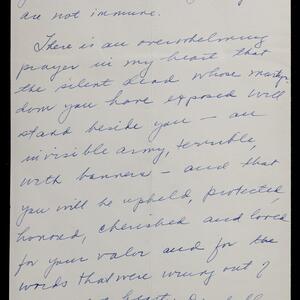 are not immune.
There is an overwhelming
prayer in my heart that
the silent dead whose martyr
dom you have exposed will
stand beside you — an
invisible army, terrible,
with banners — and that
you will be upheld, protected,
honored, cherished and loved
for your valor and for the
words that were wrung out of
heart